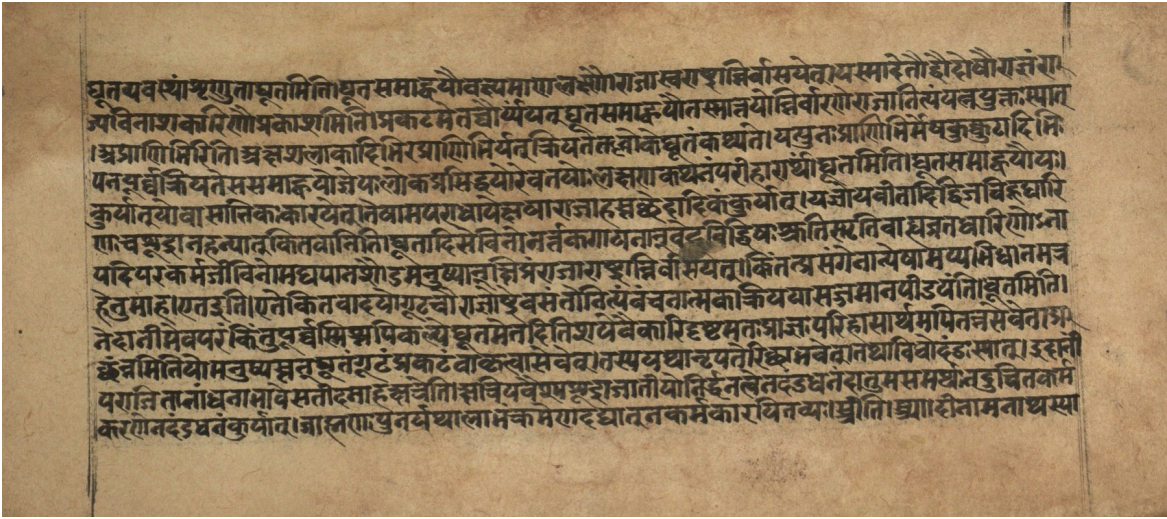 द्यूतव्यवस्थां शृणुत।द्यूतमिति।द्यूतसमाह्वयौवक्ष्यमाणलक्षणौराजास्वराष्ट्रान्निर्वासयेत्।यस्मादेतौद्वौदोषौराज्ञंरा
ज्यविनाशकारिणौप्रकाशमिति।प्रकटमेतच्चौर्य्यंयत् द्यूतसमाह्वयौतस्मात्तयोर्निर्वारणेराजानित्यंयत्नयुक्तःस्यात्
।अप्राणिभिरिति।अक्षशलाकादिभिरप्राणिभिर्यत् क्रियतेतल्लोकेद्यूतंकथ्यते।यत्पुनःप्राणिभिर्मेषकुक्कुटादिभिः
पनपूर्वंक्रियतेससमाह्वयोज्ञेयःलोकप्रसिद्धयोरेवतयोःलक्षणकथनंपरीहारार्थां।द्यूतमिति।द्यूतसमाह्वयौयः
कुर्यात्योवासनिकःकारयेत्।तेषामपराधापेक्षयाराजाहस्तच्छेदादिकंकुर्यात्।यज्ञोपवीतादिद्विजचिह्नधारि
णःचशूद्रान् हन्यात्कितवानिति।द्यूतादिसेविनोनर्त्तकगायनान् वेदविद्विषःश्रुतिस्मृतिबाह्यव्रतधारिणोऽना
पदिपरकर्मजीविनोमद्यपानशौडमनुष्यान् क्षिप्रंराजाराष्ट्रान्निर्वासयेत्।कितवप्रसंगेनान्येषामप्यभिधानमत्र
हेतुमाह।एतइति।एतेकितवादयोगूढचौराज्ञोराष्ट्रेवसंतोनित्यंवंचनात्मकक्रिययासज्जमानपीडयंति।द्यूतमिति।
नेदानीमेवपरंकिंतुपूर्वस्मिन्नपिकल्पेद्यूतमेतदितिशयेवैकारिदृष्टमतःप्राज्ञःपरिहासार्थमपितन्नसेवेत।प्र
च्छन्नमितियोमनुष्यस्तत् द्यूतंगूढंप्रकटंवाकृत्वासेवेत।तस्ययथानृपतेरिच्छाभवेत्।तथाविधोदंडःस्यात्।इदानीं
पराजितानांधनाभावेसतीदमाहक्षत्रेति।क्षत्रविषवैश्यशूद्राजातीयोनिर्द्धनत्वेनदंडधनंदातुमसमर्थःतदुचितकर्म
करणेनदंडधनंकुर्यात्।ब्राह्मणःपुनर्यथालाभंक्रमेणदद्यात् नकर्मकारयितव्यः।स्त्रीति।स्त्र्या।दीनामनाथस्या